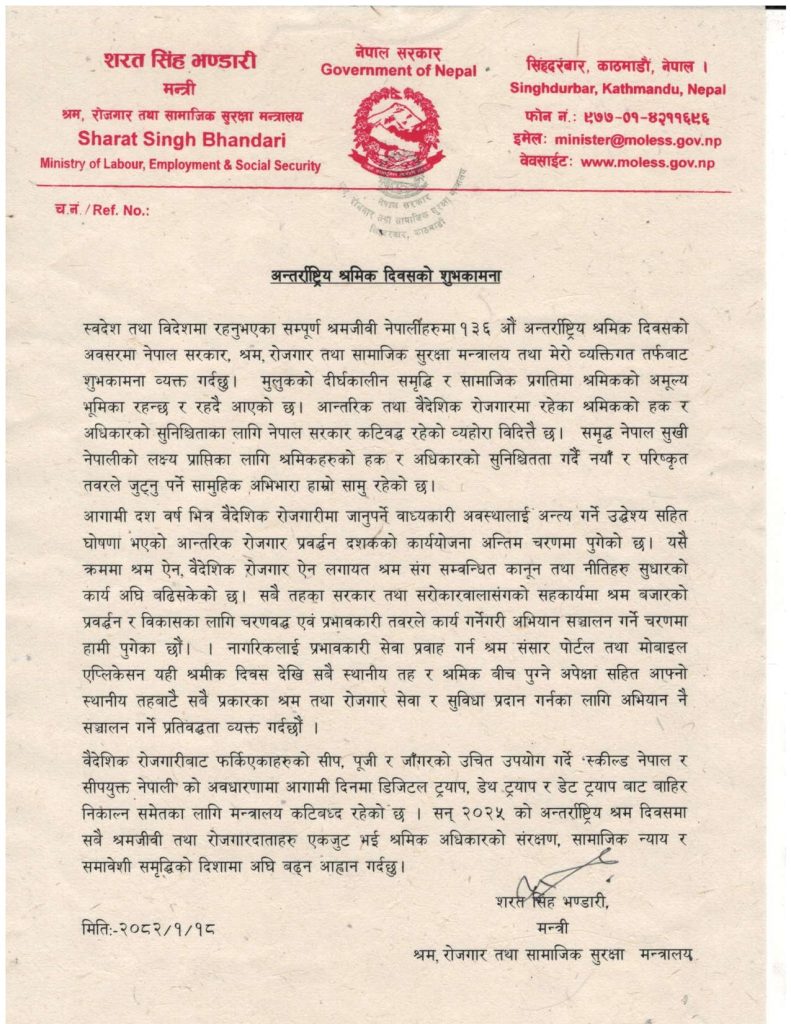 शरत सिंह भण्डारी
मन्त्री
श्रम, रोजगार तथा सामाजिक सुरक्षा मन्त्रालय
Sharat Singh Bhandari
Ministry of Labour, Employment & Social Security
नेपाल सरकार
Government of Nepal
सिंहदरबार, काठमाडौं, नेपाल ।
Singhdurbar, Kathmandu, Nepal
फोन नं.: ९७७-०१-४२११६९६
इमेल: minister@moless.gov.np
वेवसाईट: www.moless.gov.np
नेपाल सरकार
रोजगार तथा सामाजिक सुरक्षा मन्त्रालय
काठमाडौं
च.नं./Ref. No.:
अन्तर्राष्ट्रिय श्रमिक दिवसको शुभकामना
स्वदेश तथा विदेशमा रहनुभएका सम्पूर्ण श्रमजीवी नेपालीहरुमा १३६ औं अन्तर्राष्ट्रिय श्रमिक दिवसको
अवसरमा नेपाल सरकार, श्रम, रोजगार तथा सामाजिक सुरक्षा मन्त्रालय तथा मेरो व्यक्तिगत तर्फबाट
शुभकामना व्यक्त गर्दछु। मुलुकको दीर्घकालीन समृद्धि र सामाजिक प्रगतिमा श्रमिकको अमूल्य
भूमिका रहन्छ र रहदै आएको छ। आन्तरिक तथा वैदेशिक रोजगारमा रहेका श्रमिकको हक र
अधिकारको सुनिश्चितताका लागि नेपाल सरकार कटिवद्ध रहेको व्यहोरा विदित्तै छ। समृद्ध नेपाल सुखी
नेपालीको लक्ष्य प्राप्तिका लागि श्रमिकहरुको हक र अधिकारको सुनिश्चितता गर्दै नयाँ र परिष्कृत
तवरले जुट्नु पर्ने सामुहिक अभिभारा हाम्रो सामु रहेको छ।
आगामी दश वर्ष भित्र वैदेशिक रोजगारीमा जानुपर्ने वाध्यकारी अवस्थालाई अन्त्य गर्ने उद्धेश्य सहित
घोषणा भएको आन्तरिक रोजगार प्रवर्द्धन दशकको कार्ययोजना अन्तिम चरणमा पुगेको छ। यसै
क्रममा श्रम ऐन, वैदेशिक रोजगार ऐन लगायत श्रम संग सम्बन्धित कानून तथा नीतिहरु सुधारको
कार्य अघि बढिसकेको छ। सबै तहका सरकार तथा सरोकारवालासंगको सहकार्यमा श्रम बजारको
प्रवर्द्धन र विकासका लागि चरणवद्ध एवं प्रभावकारी तवरले कार्य गर्नेगरी अभियान सञ्चालन गर्ने चरणमा
हामी पुगेका छौं। । नागरिकलाई प्रभावकारी सेवा प्रवाह गर्न श्रम संसार पोर्टल तथा मोबाइल
एप्लिकेसन यही श्रमीक दिवस देखि सबै स्थानीय तह र श्रमिक बीच पुग्ने अपेक्षा सहित आफ्नो
स्थानीय तहबाटै सबै प्रकारका श्रम तथा रोजगार सेवा र सुविधा प्रदान गर्नका लागि अभियान नै
सञ्चालन गर्ने प्रतिवद्धता व्यक्त गर्दछौं ।
वैदेशिक रोजगारीबाट फर्किएकाहरुको सीप, पूजी र जाँगरको उचित उपयोग गर्दे 'स्कील्ड नेपाल र
सीपयुक्त नेपाली' को अवधारणामा आगामी दिनमा डिजिटल ट्रयाप, डेथ ट्रयाप र डेट ट्रयाप बाट वाहिर
निकाल्न समेतका लागि मन्त्रालय कटिबध्द रहेको छ । सन् २०२५ को अन्तर्राष्ट्रिय श्रम दिवसमा
सबै श्रमजीवी तथा रोजगारदाताहरु एकजुट भई श्रमिक अधिकारको संरक्षण, सामाजिक न्याय र
समावेशी समृद्धिको दिशामा अघि बढ्न आह्वान गर्दछु।
शरत सिंह भण्डारी,
मिति:-२०८२/१/१८
मन्त्री
श्रम, रोजगार तथा सामाजिक सुरक्षा मन्त्रालय